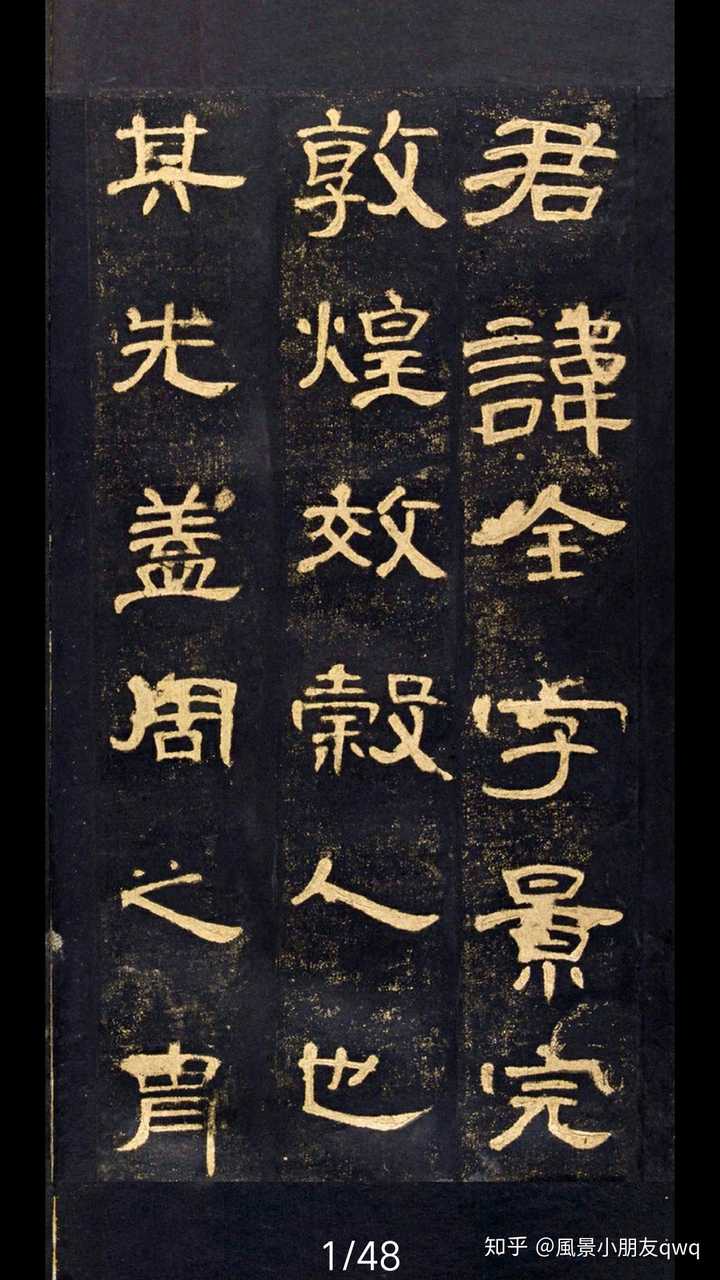 君諱全字景完
敦煌效穀人也
其先蓋周之胄
1/48
知乎 @風景小朋友qwq